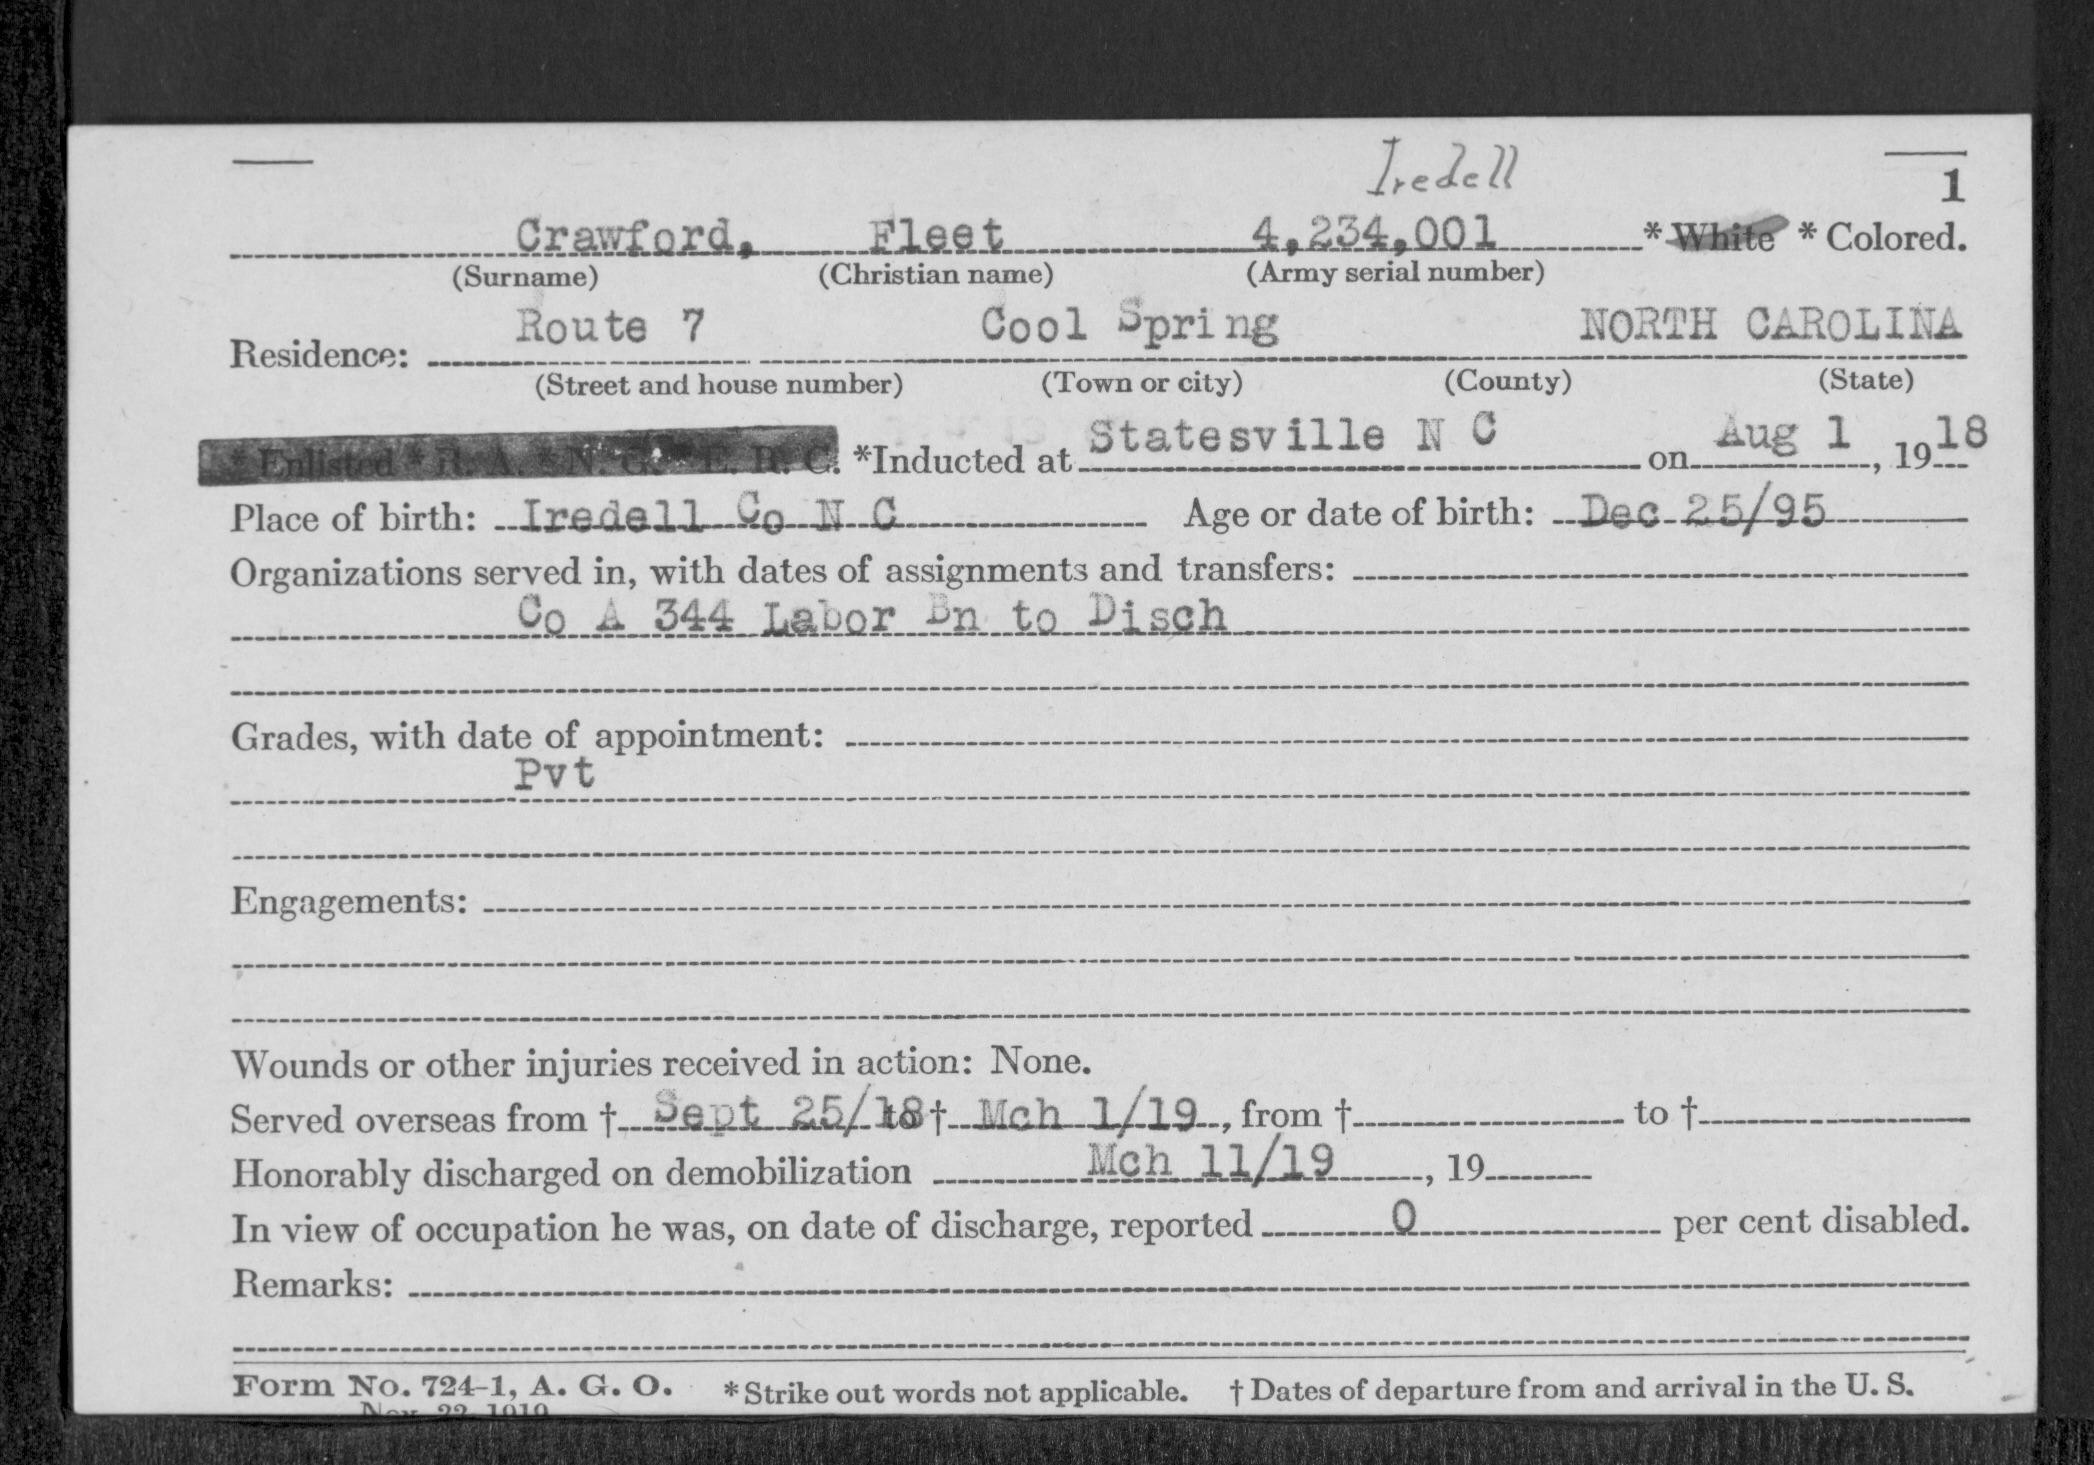 Iredell
1
Crawford, Fleet 4,234,001 * White * Colored.
(Surname) (Christian name) (Army serial number)
Route 7 Cool Spring NORTH CAROLINA
Residence:
(Street and house number) (Town or city) (County) (State)
* Enlisted * R. A. * N. G. * E. R. C. *Inducted at Statesville N C on Aug 1, 1918
Place of birth: Iredell Co N C Age or date of birth: Dec 25/95
Organizations served in, with dates of assignments and transfers:
Co A 344 Labor Bn to Disch
Grades, with date of appointment:
Pvt
Engagements:
Wounds or other injuries received in action: None.
Served overseas from † Sept 25/18 to † Mch 1/19, from † to †
Honorably discharged on demobilization Mch 11/19, 19
In view of occupation he was, on date of discharge, reported 0 per cent disabled.
Remarks:
Form No. 724-1, A. G. O. * Strike out words not applicable. † Dates of departure from and arrival in the U. S.
Nov. 22, 1919